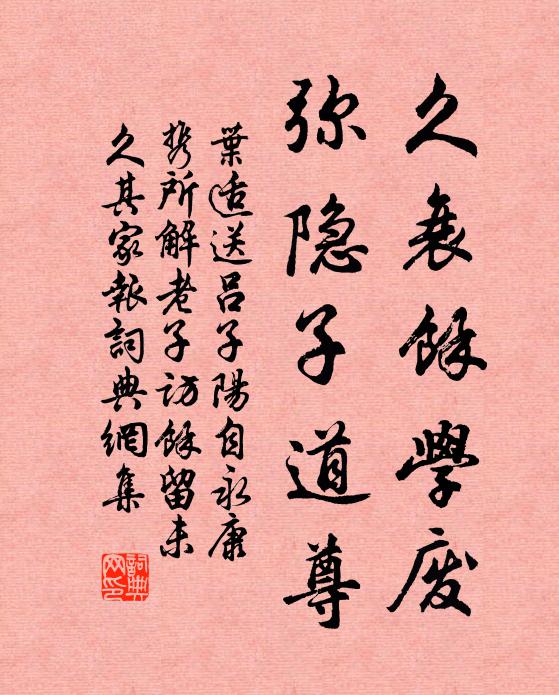 久衰餘學廢
弥隐子道尊
葉適送呂子陽自永康
携所解老子訪餘留未
久其家報詞典網集
詞典
网印